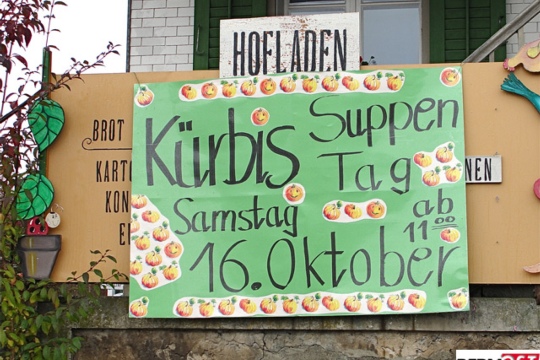 HOFLADEN
BROT
KARTO
KON
NEN
Kürbis Suppen
Tag
Samstag ab
11 00
16. Oktober